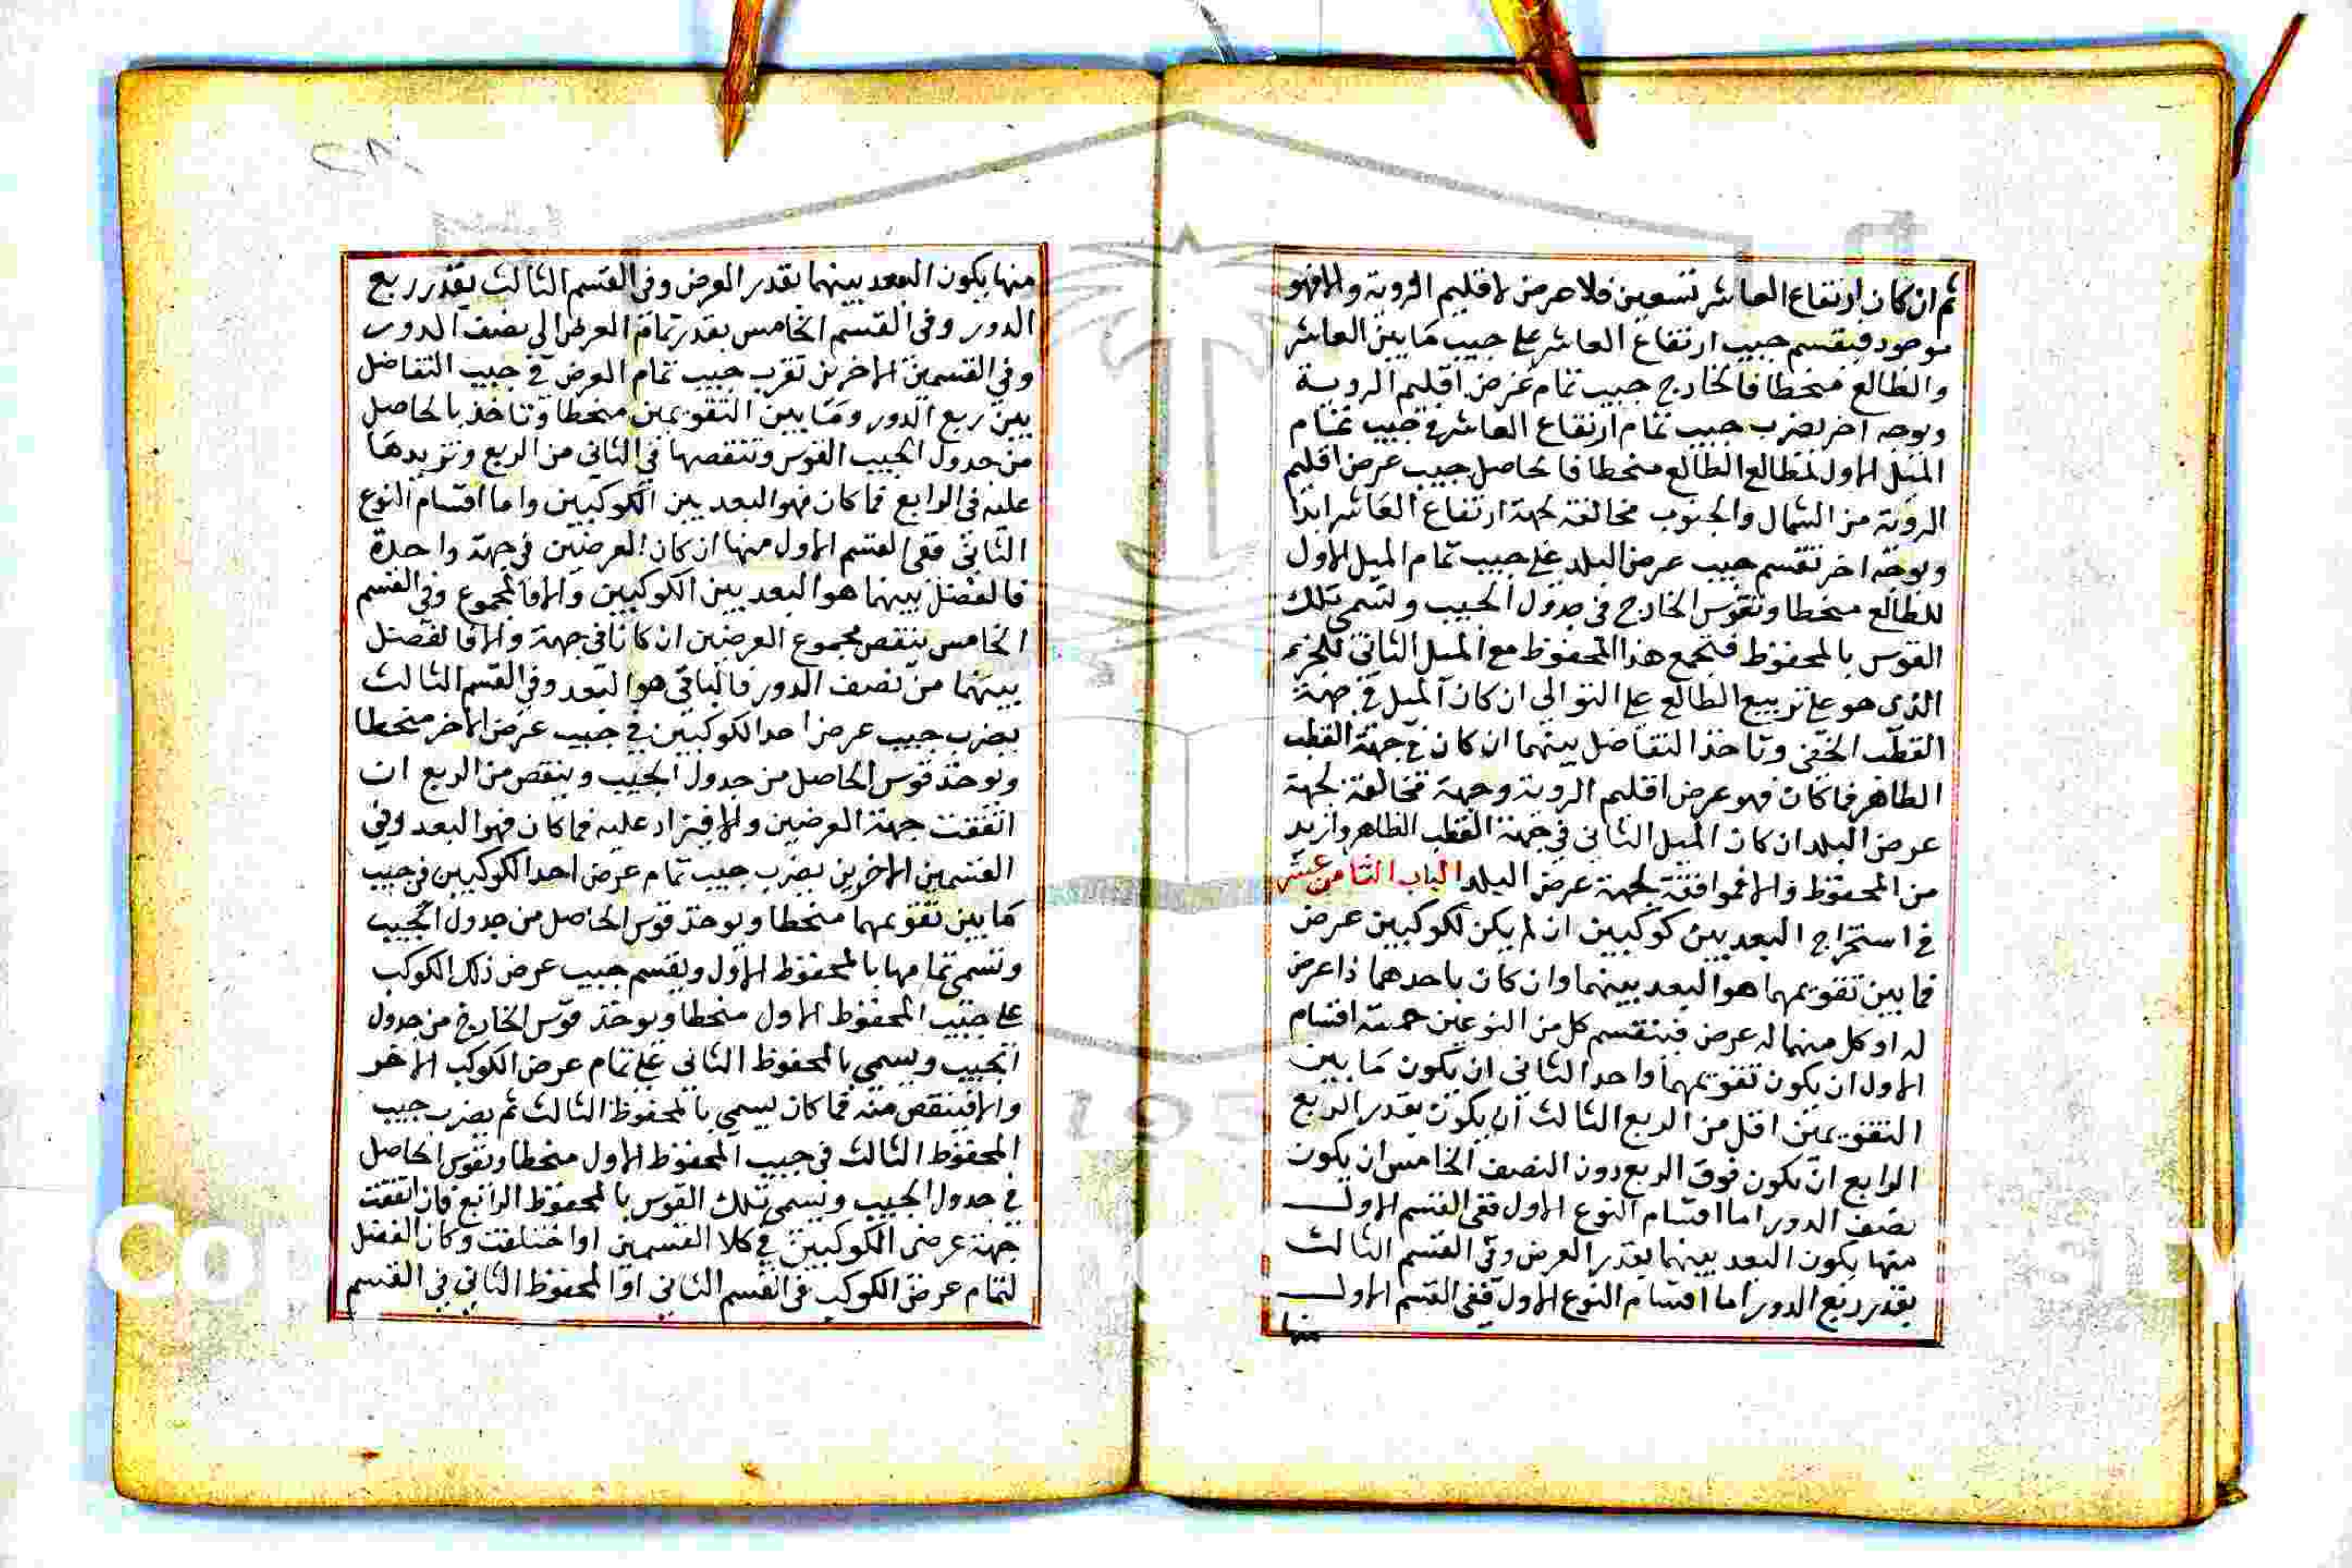 ثم ان كان ارتفاع العاشر تسعين فلا عرض لاقليم الروية والا فهو
موجود فيقسم جيب ارتفاع العاشر على جيب ما بين العاشر
والطالع منحطا فالخارج جيب تمام عرض اقليم الروية
وبوجه اخر يضرب جيب تمام ارتفاع العاشر في جيب تمام
الميل الاول لمطالع الطالع منحطا فالحاصل جيب عرض اقليم
الروية من الشمال والجنوب مخالفة لجهة ارتفاع العاشر ابدا
وبوجه اخر نقسم جيب عرض البلد على جيب تمام الميل الاول
للطالع منحطا ونقوس الخارج في جدول الجيب ونسمى تلك
القوس بالمحفوظ فتجمع هذا المحفوظ مع الميل الثاني للجزء
الذى هو على تربيع الطالع على التوالى ان كان الميل في جهة
القطب الخفى وتاخذ التفاضل بينهما ان كان في جهة القطب
الظاهر فما كان فهو عرض اقليم الروية وجهة مخالفة لجهة
عرض البلد ان كان الميل الثاني في جهة القطب الظاهر وازيد
من المحفوظ والا فموافقة لجهة عرض البلد الباب الثامن عشر
في استخراج البعد بين كوكبين ان لم يكن لكوكبين عرض
فما بين تقويمهما هو البعد بينهما وان كان باحدهما ذا عرض
له او كل منهما له عرض فينقسم كل من النوعين خمسة اقسام
الاول ان يكون تقويمهما واحدا الثاني ان يكون ما بين
التقويمين اقل من الربع الثالث ان يكون بقدر الربع
الرابع ان يكون فوق الربع دون النصف الخامس ان يكون
نصف الدور اما اقسام النوع الاول ففى القسم الاول
منها يكون البعد بينهما بقدر العرض وفي القسم الثالث
بقدر ربع الدور اما اقسام النوع الاول ففى القسم الاول
منها
منها يكون البعد بينهما بقدر العرض وفي القسم الثالث بقدر ربع
الدور وفي القسم الخامس بقدر تمام العرض الى نصف الدور
وفي القسمين الاخرين نضرب جيب تمام العرض في جيب التفاضل
بين ربع الدور وما بين التقويمين منحطا وتاخذ بالحاصل
من جدول الجيب القوس وتنقصها في الثاني من الربع وتزيدها
عليه في الرابع فما كان فهو البعد بين الكوكبين واما اقسام النوع
الثاني ففى القسم الاول منها ان كان العرضين في جهة واحدة
فالفضل بينهما هو البعد بين الكوكبين والا فالمجموع وفي القسم
الخامس ينقص مجموع العرضين ان كانا في جهة والا فالفضل
بينهما من نصف الدور فالباقي هو البعد وفي القسم الثالث
يضرب جيب عرض احد الكوكبين في جيب عرض الاخر منحطا
ويوخذ قوس الحاصل من جدول الجيب وينقص من الربع ان
اتفقت جهة العرضين والا فيزاد عليه فما كان فهو البعد وفي
القسمين الاخرين يضرب جيب تمام عرض احد الكوكبين في جيب
ما بين تقويمهما منحطا ويوخذ قوس الحاصل من جدول الجيب
ونسمى تمامها بالمحفوظ الاول ويقسم جيب عرض ذلك الكوكب
على جيب المحفوظ الاول منحطا ويوخذ قوس الخارج من جدول
الجيب ويسمى بالمحفوظ الثاني على تمام عرض الكوكب الاخر
والا فينقص منه فما كان يسمى بالمحفوظ الثالث ثم يضرب جيب
المحفوظ الثالث في جيب المحفوظ الاول منحطا ونقوس الحاصل
في جدول الجيب ونسمى تلك القوس بالمحفوظ الرابع فان اتفقت
جهة عرضى الكوكبين في كلا القسمين او اختلفت وكان الفضل
لتمام عرض الكوكب في القسم الثاني او المحفوظ الثاني في القسم